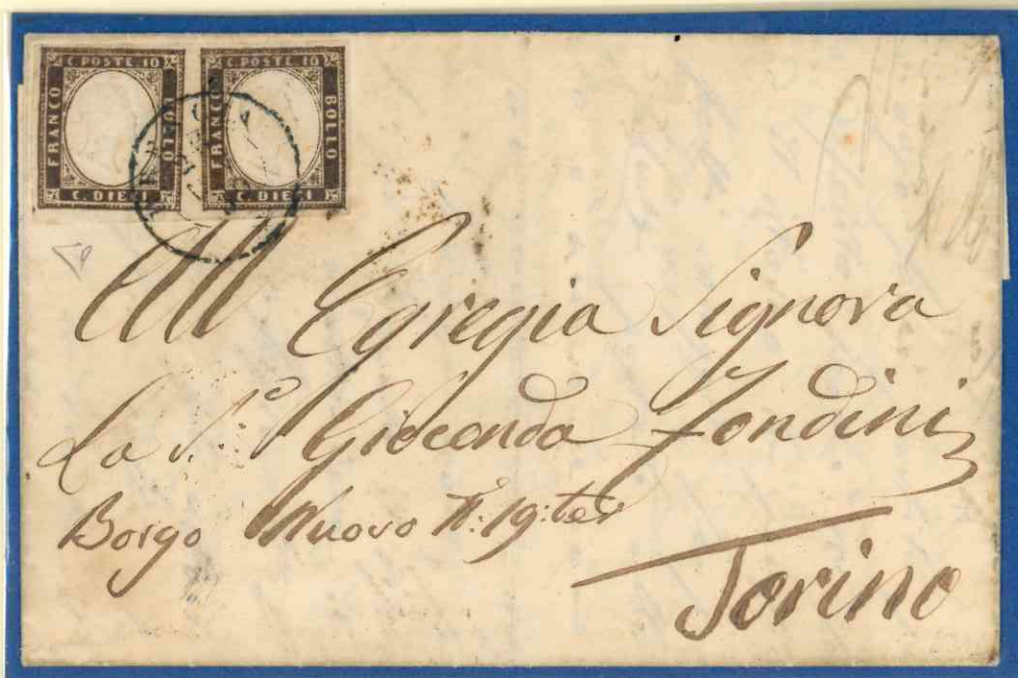 C. POSTE 10
FRANCO
BOLLO
C. DIECI
C. POSTE 10
FRANCO
BOLLO
C. DIECI
All Egregia Signora
La S.ra Gioconda Fondini
Borgo Nuovo N: 19: ter
Torino